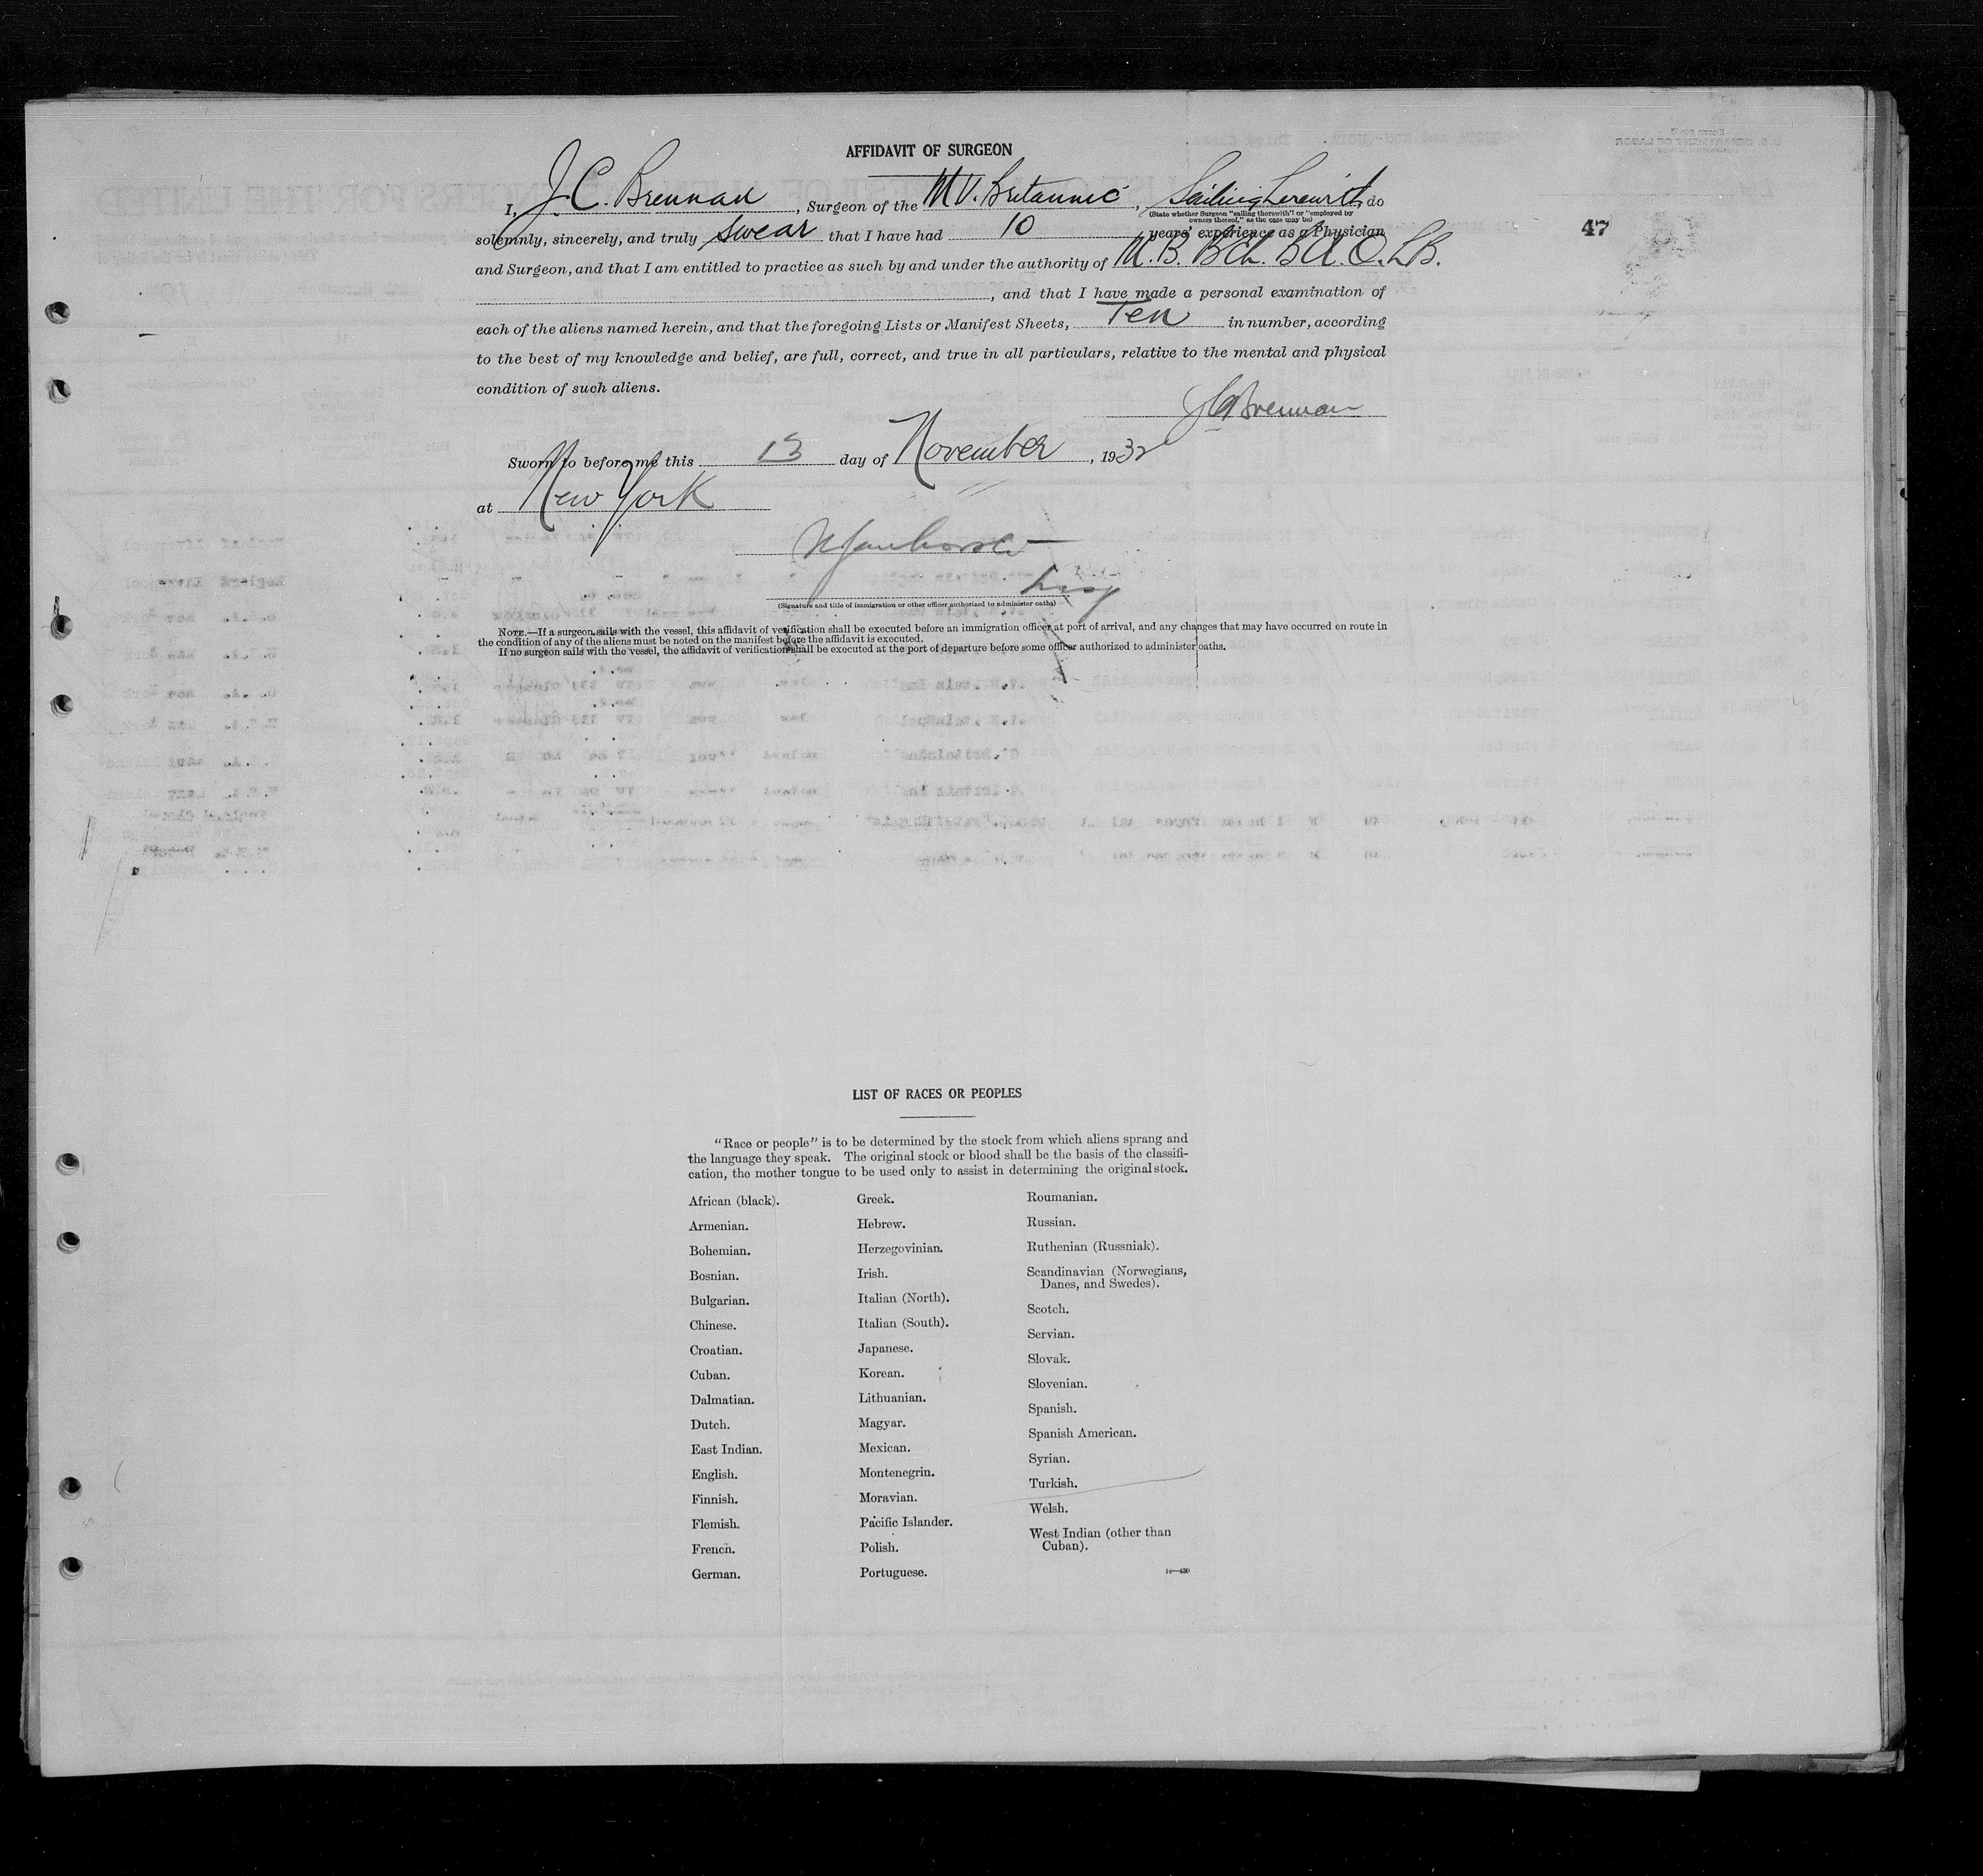 AFFIDAVIT OF SURGEON
I, J. C. Brennan, Surgeon of the MV. Britannic, Sailing therewith, do
(State whether Surgeon "sailing therewith" or "employed by
owners thereof," as the case may be)
solemnly, sincerely, and truly swear that I have had 10 years' experience as a Physician
47
and Surgeon, and that I am entitled to practice as such by and under the authority of M. B. BCh. B A. O.
, and that I have made a personal examination of
each of the aliens named herein, and that the foregoing Lists or Manifest Sheets, Ten in number, according
to the best of my knowledge and belief, are full, correct, and true in all particulars, relative to the mental and physical
condition of such aliens.
J C Brennan
Sworn to before me this 13 day of November, 1932
at New York
Insp
(Signature and title of immigration or other officer authorized to administer oaths)
NOTE.—If a surgeon sails with the vessel, this affidavit of verification shall be executed before an immigration officer at port of arrival, and any changes that may have occurred en route in
the condition of any of the aliens must be noted on the manifest before the affidavit is executed.
If no surgeon sails with the vessel, the affidavit of verification shall be executed at the port of departure before some officer authorized to administer oaths.
LIST OF RACES OR PEOPLES
"Race or people" is to be determined by the stock from which aliens sprang and
the language they speak. The original stock or blood shall be the basis of the classifi-
cation, the mother tongue to be used only to assist in determining the original stock.
African (black).
Armenian.
Bohemian.
Bosnian.
Bulgarian.
Chinese.
Croatian.
Cuban.
Dalmatian.
Dutch.
East Indian.
English.
Finnish.
Flemish.
French.
German.
Greek.
Hebrew.
Herzegovinian.
Irish.
Italian (North).
Italian (South).
Japanese.
Korean.
Lithuanian.
Magyar.
Mexican.
Montenegrin.
Moravian.
Pacific Islander.
Polish.
Portuguese.
Roumanian.
Russian.
Ruthenian (Russniak).
Scandinavian (Norwegians,
Danes, and Swedes).
Scotch.
Servian.
Slovak.
Slovenian.
Spanish.
Spanish American.
Syrian.
Turkish.
Welsh.
West Indian (other than
Cuban).